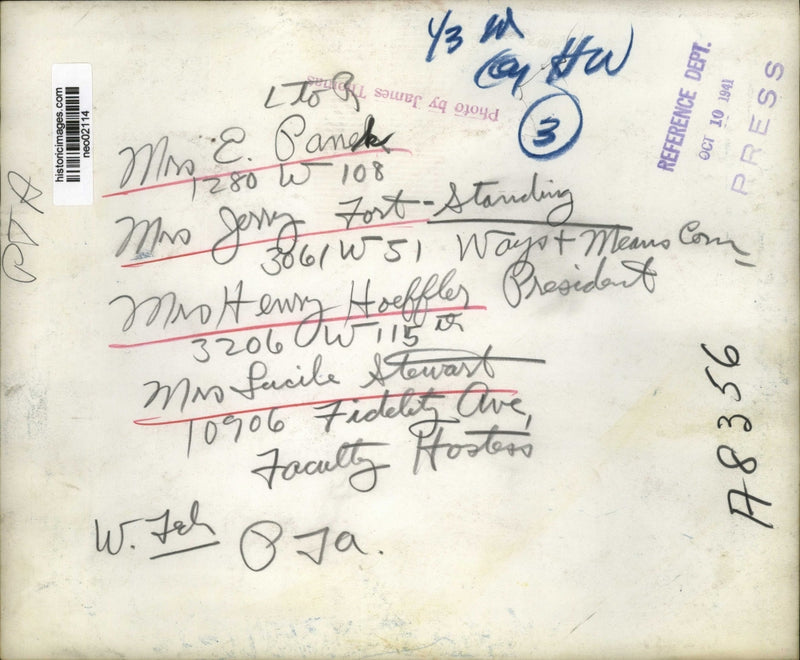 1/3 M
HW
3
REFERENCE DEPT.
OCT 10 1941
PRESS
historicimages.com
neo02114
Photo by James Thomas
L to R
Mrs E. Panek
1280 W 108
Mrs Jerry Fort - Standing
3061 W 51 Ways + Means Com
Mrs Henry Hoeffler President
3206 W 115 th
Mrs Lucile Stewart
10906 Fidelity Ave,
Faculty Hostess
W. PTA.
PTA
A8356